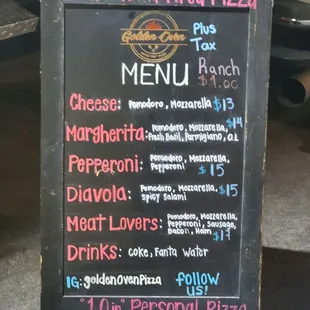 Pizza
Golden Oven
Plus
Tax
MENU
Ranch
$1.00
Cheese: Pomodoro, Mozzarella $13
Margherita: Pomodoro, Mozzarella, $14
Fresh Basil, Parmigiano, o.il
Pepperoni: Pomodoro, Mozzarella,
Pepperoni $15
Diavola: Pomodoro, Mozzarella, $15
Spicy Salami
Meat Lovers: Pomodoro, Mozzarella,
Pepperoni, Sausage,
Bacon, Ham $17
Drinks: Coke, Fanta Water
IG: goldenOvenPizza follow
us!
"10in" Personal Pizza